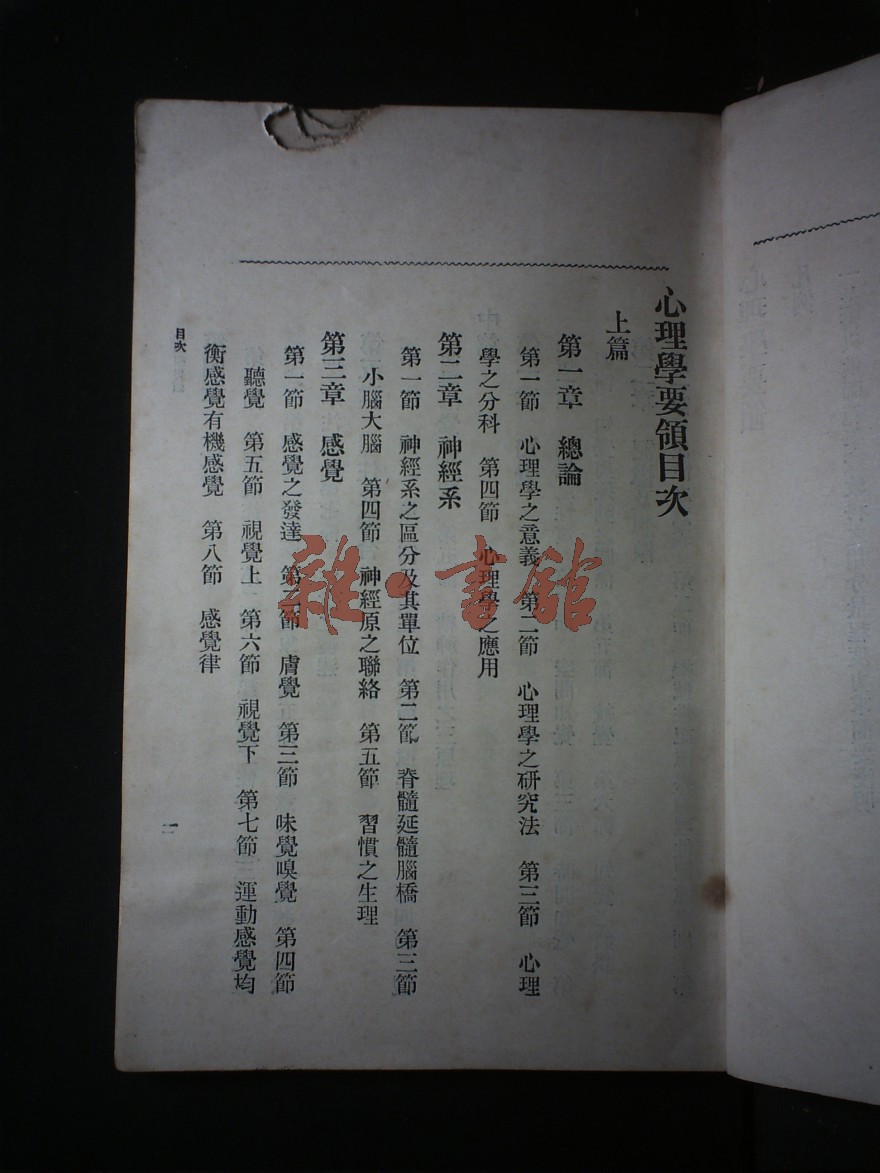 心理學要領目次
上篇
第一章　總論
第一節　心理學之意義　第二節　心理學之研究法　第三節　心理
學之分科　第四節　心理學之應用
第二章　神經系
第一節　神經系之區分及其單位　第二節　脊髓延髓腦橋　第三節
小腦大腦　第四節　神經原之聯絡　第五節　習慣之生理
第三章　感覺
第一節　感覺之發達　第二節　膚覺　第三節　味覺嗅覺　第四節
聽覺　第五節　視覺上　第六節　視覺下　第七節　運動感覺均
衡感覺有機感覺　第八節　感覺律
目次
一
雜·書館